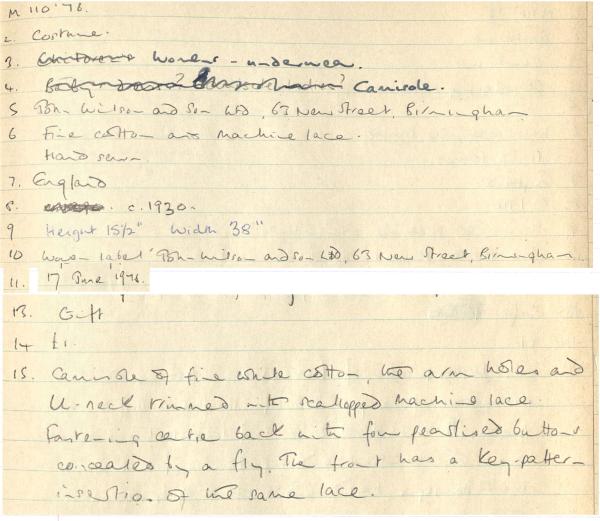 M 110'76.
2. Costume.
3. Children's Women's - underwear.
4. Camisole.
5 John Wilson and Son Ltd, 63 New Street, Birmingham
6 Fine cotton and machine lace.
Hand sewn.
7. England
8. c. 1930.
9 Height 15½" Width 38"
10 Woven label 'John Wilson and Son Ltd, 63 New Street, Birmingham
11. 17 June 1976.
13. Gift
14 £1.
15. Camisole of fine white cotton, the arm holes and
U-neck trimmed with scalloped machine lace.
Fastening centre back with four pearlised buttons
concealed by a fly. The front has a key-pattern
insertion of the same lace.